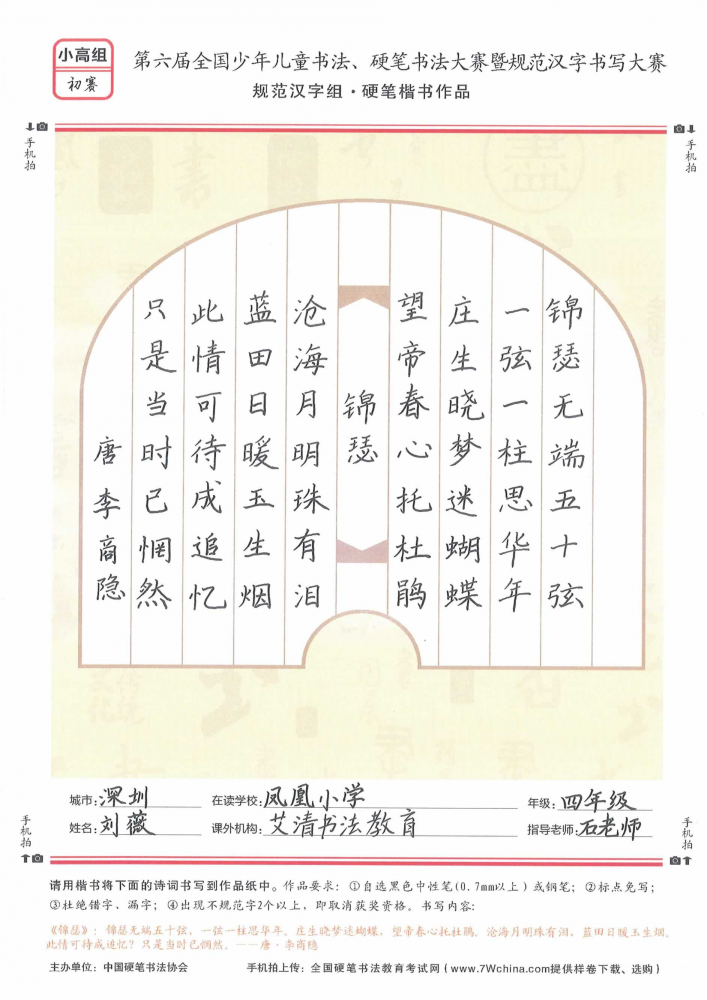 小高组
初赛
第六届全国少年儿童书法、硬笔书法大赛暨规范汉字书写大赛
规范汉字组·硬笔楷书作品
手机拍
手机拍
锦瑟无端五十弦
一弦一柱思华年
庄生晓梦迷蝴蝶
望帝春心托杜鹃
锦瑟
沧海月明珠有泪
蓝田日暖玉生烟
此情可待成追忆
只是当时已惘然
唐李商隐
城市:深圳 在读学校:凤凰小学 年级:四年级
姓名:刘薇 课外机构:艾清书法教育 指导老师:石老师
手机拍
手机拍
请用楷书将下面的诗词书写到作品纸中。作品要求:①自选黑色中性笔(0.7mm以上)或钢笔;②标点免写;
③杜绝错字、漏字;④出现不规范字2个以上,即取消获奖资格。书写内容:
《锦瑟》:锦瑟无端五十弦,一弦一柱思华年。庄生晓梦迷蝴蝶,望帝春心托杜鹃。沧海月明珠有泪,蓝田日暖玉生烟。
此情可待成追忆?只是当时已惘然。——唐·李商隐
主办单位:中国硬笔书法协会 手机拍上传:全国硬笔书法教育考试网(www.7Wchina.com提供样卷下载、选购)